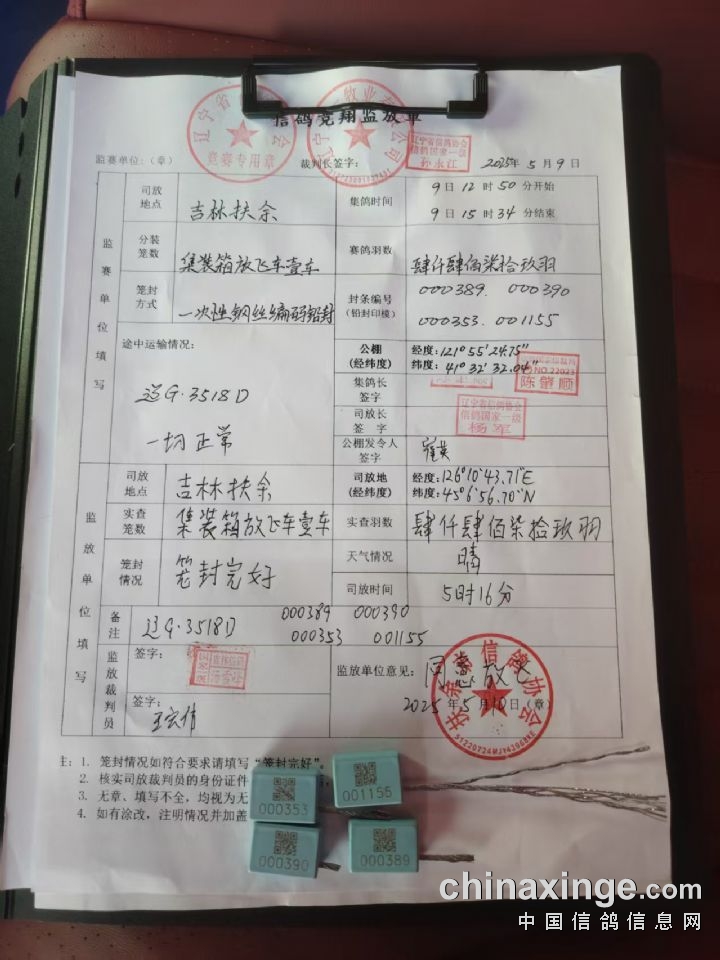 信鸽竞翔监放单
辽宁省
竞赛专用章
辽宁省信鸽协会
信鸽国家一级
孙永江
监赛单位:(章)
裁判长签字:
2025年5月9日
监赛单位填写
司放地点
吉林扶余
集鸽时间
9日12时50分开始
9日15时34分结束
分装笼数
集装箱放飞车壹车
赛鸽羽数
肆仟肆佰柒拾玖羽
笼封方式
一次性钢丝编码铅封
封条编号
(铅封印模)
000389. 000390
000353. 001155
途中运输情况:
辽G·3518D
一切正常
公棚
(经纬度)
经度:121°55′24.75″
纬度: 41°32′32.04″
NO.22023
陈肇顺
集鸽长签字
司放长签 字
辽宁省信鸽协会
信鸽国家一级
杨军
公棚发令人签字
监放单位填写
司放地点
吉林扶余
司放地
(经纬度)
经度:126°10′43.71″E
纬度:45°6′56.70″N
实查笼数
集装箱放飞车壹车
实查羽数
肆仟肆佰柒拾玖羽
笼封情况
笼封完好
天气情况
晴
司放时间
5时16分
备注
辽G·3518D
000389 000390
000353 001155
监放裁判员
签字:
签字:
王宏伟
监放单位意见:
同意放飞
2025年5月10日(章)
扶余市信鸽协会
注: 1. 笼封情况如符合要求请填写“笼封完好”。
2. 核实司放裁判员的身份证件
3. 无章、填写不全，均视为无
4. 如有涂改，注明情况并加盖
000353
001155
000390
000389
chinaxinge.com
中国信鸽信息网